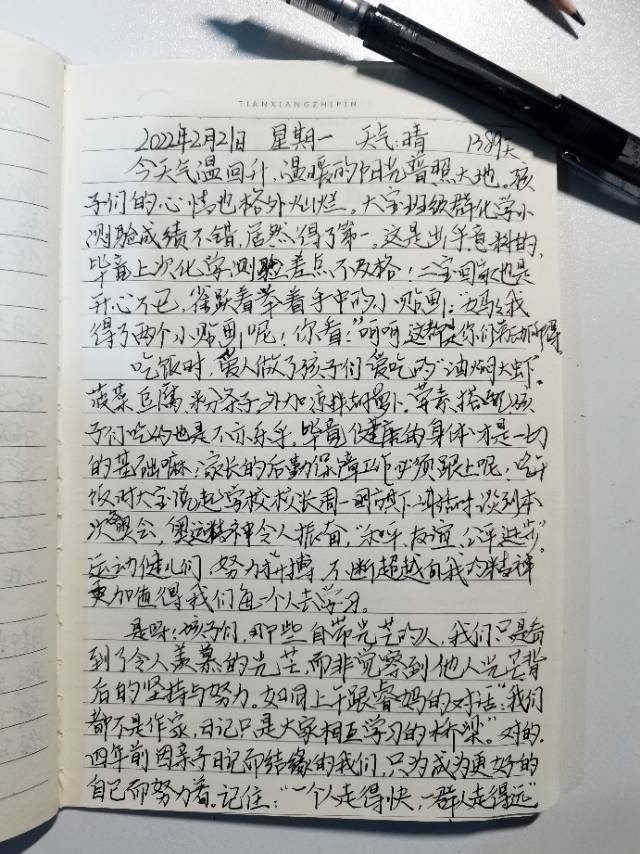 TIANXIANGZHIPIN
2022年2月21日 星期一 天气:晴 1389天
今天气温回升,温暖的阳光普照大地。孩
子们的心情也格外灿烂。大宝班级群化学小
测验成绩不错,居然得了第一。这是出乎意料的,
毕竟上次化学测验差点不及格!二宝回家也是
开心不已,雀跃着举着手中的小贴画:妈妈我
得了两个小贴画呢!你看!"呵呵,这都是你们劳动所得。
吃饭时,爱人做了孩子们爱吃的"油焖大虾、
菠菜豆腐、粉条子外加凉拌胡萝卜。荤素搭配孩
子们吃的也是不亦乐乎,毕竟健康的身体才是一切
的基础嘛!家长的后勤保障工作必须跟上呢。吃午
饭时大宝说起学校校长周一国旗下讲话时谈到本
次奥会,奥运精神令人振奋,"和平,友谊,公平进步"。
运动健儿们,努力拼搏,不断超越自我的精神
更加值得我们每一个人去学习。
是呀!孩子们,那些自带光芒的人,我们只是看
到了令人羡慕的光芒,而非觉察到他人光芒背
后的坚持与努力。如同上午跟睿妈的对话:"我们
都不是作家,日记只是大家相互学习的桥梁。"对的,
四年前因亲子日记而结缘的我们,只为成为更好的
自己而努力着。记住:"一个人走得快,一群人走得远"